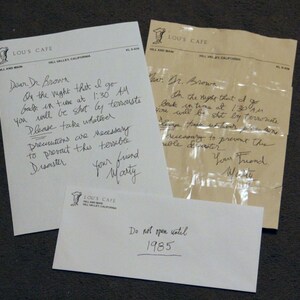 LOU'S CAFE
HILL VALLEY, CALIFORNIA
Dear Dr. Brown,
On the night that I go
back in time at 1:30 AM
you will be shot by terrorists
Please take whatever
precautions are necessary
to prevent this terrible
Disaster
Your friend
Marty
LOU'S CAFE
HILL VALLEY, CALIFORNIA
Dear Dr. Brown,
On the night that I go
back in time at 1:30 AM
you will be shot by terrorists
necessary to prevent this
Your Friend
Marty
LOU'S CAFE
HILL VALLEY, CALIFORNIA
Do not open until
1985